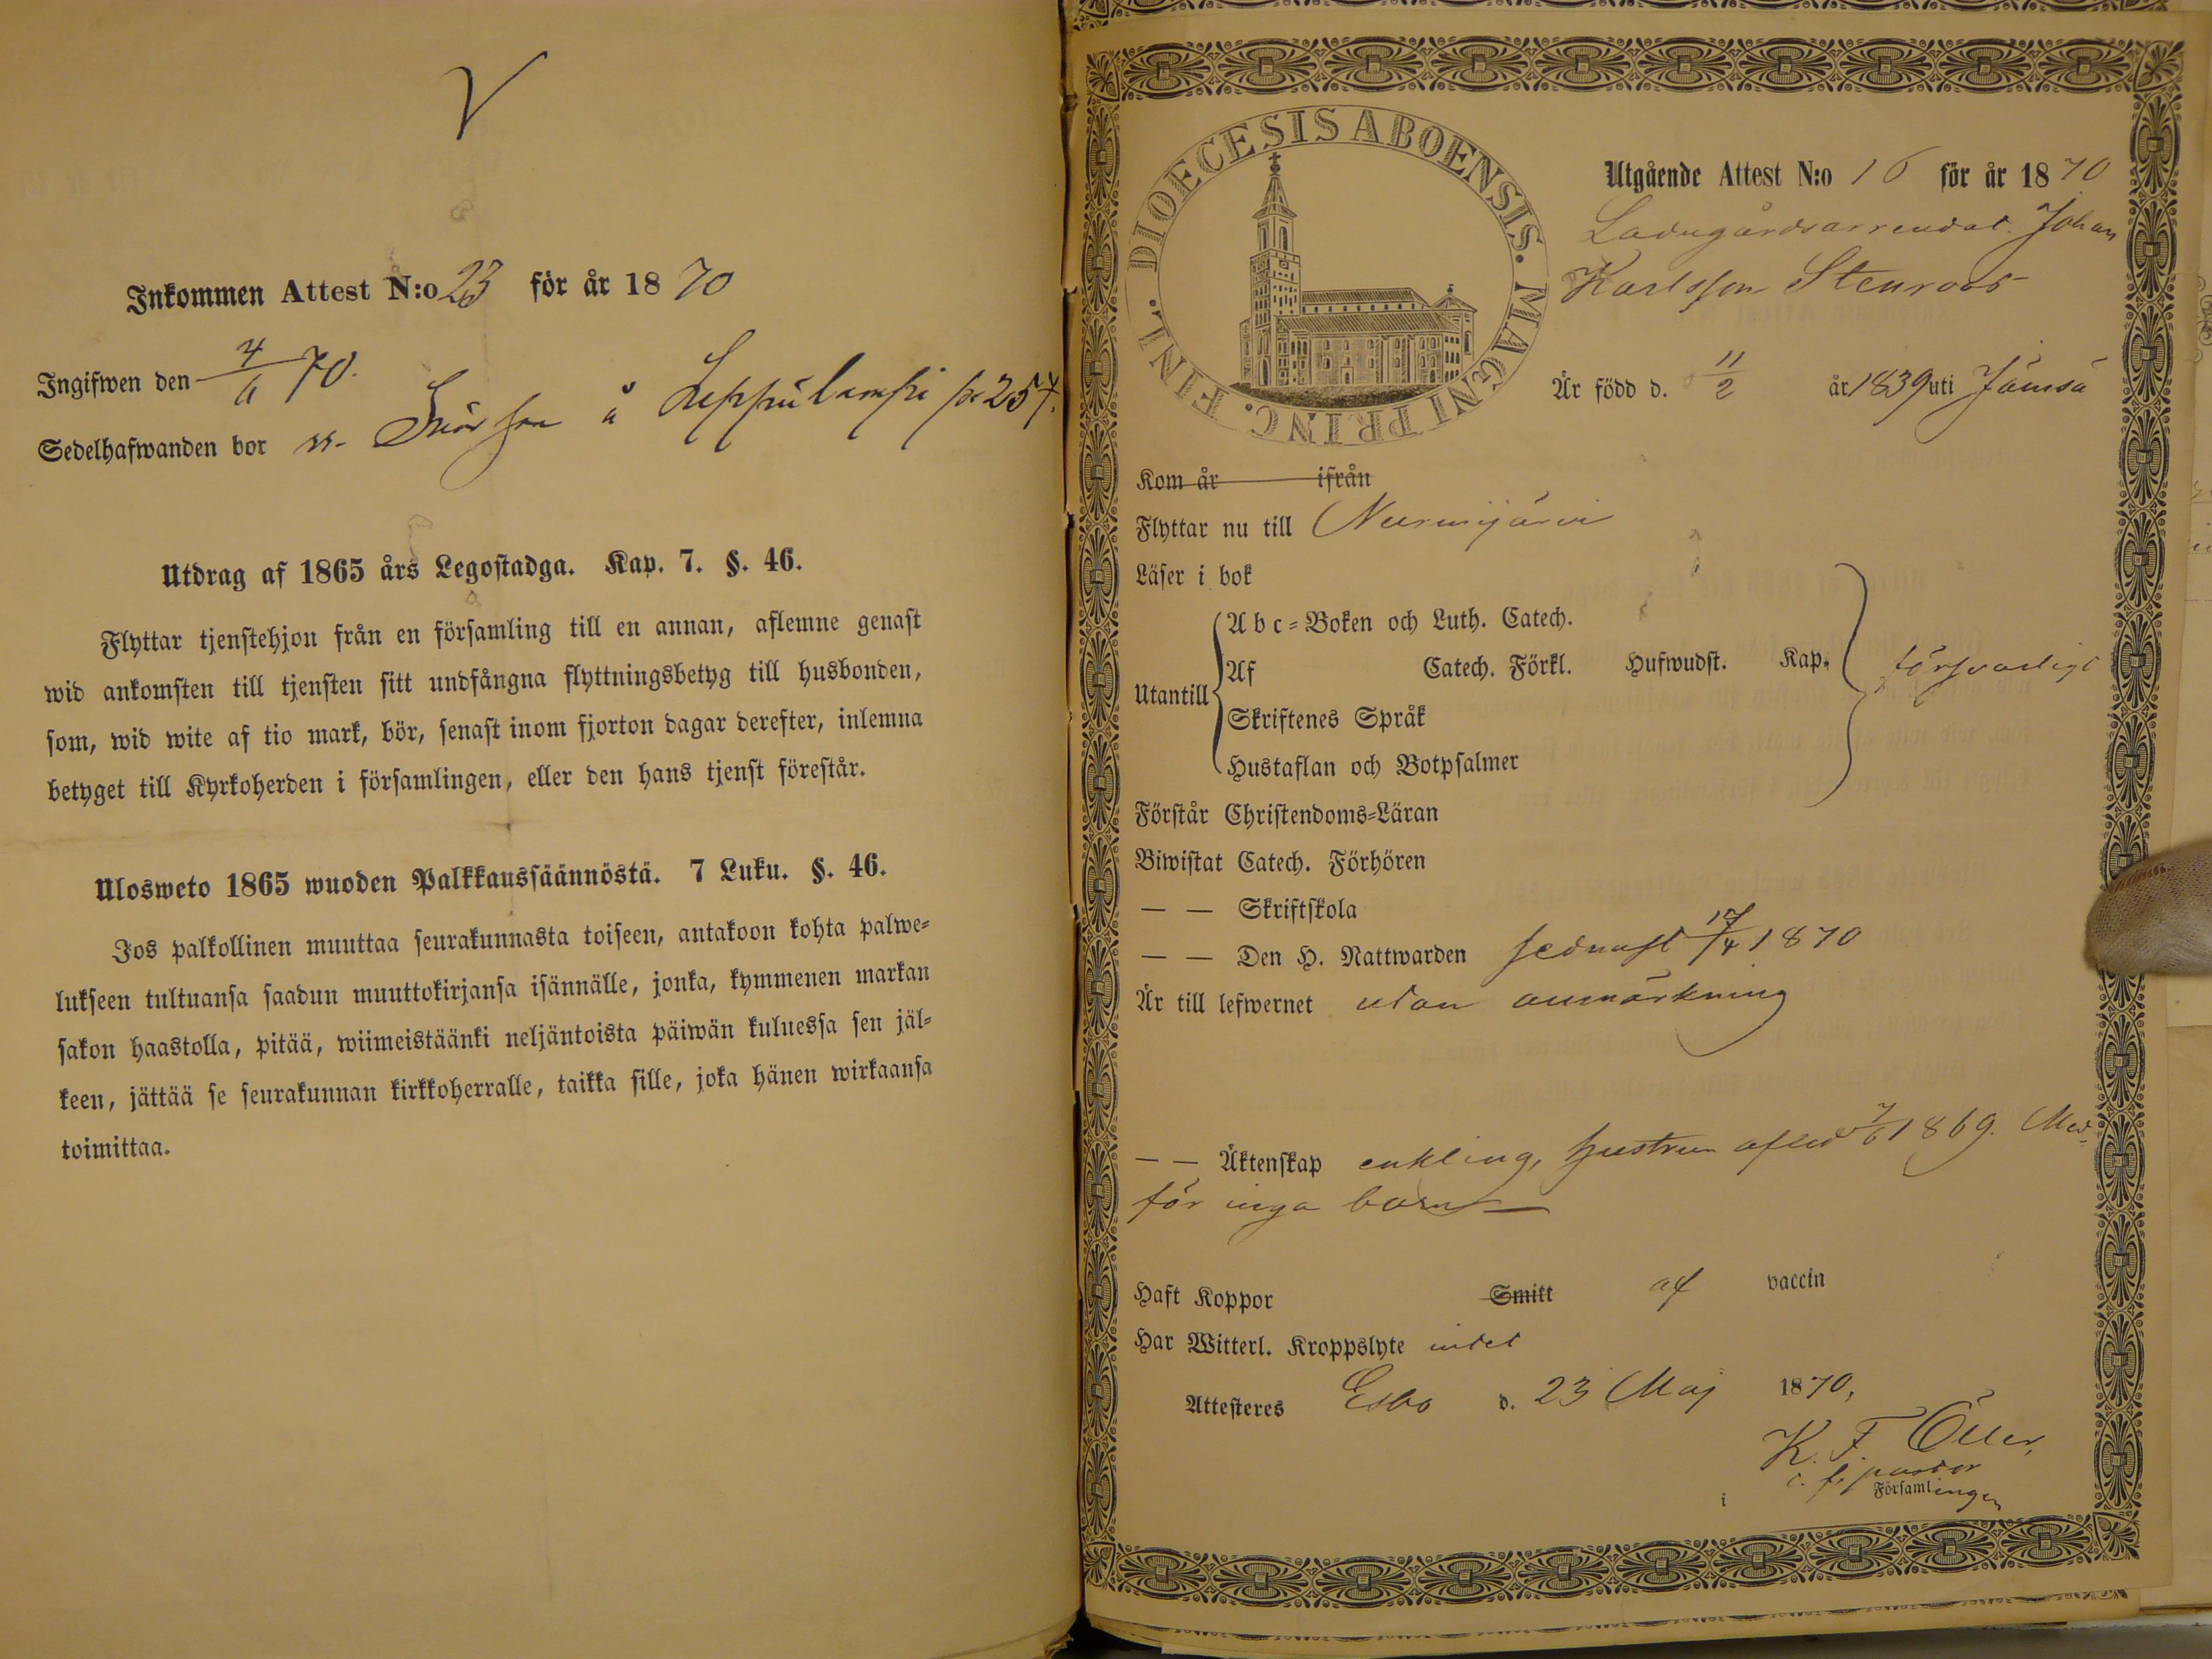 Inkommen Attest N:o 23 för år 1870
Ingifwen den 4/6 70.
Sedelhafwanden bor å Leppälampi 257.
Utdrag af 1865 års Legostadga. Kap. 7. §. 46.
Flyttar tjenstehjon från en församling till en annan, aflemne genast
wid ankomsten till tjensten sitt undfångna flyttningsbetyg till husbonden,
som, wid wite af tio mark, bör, senast inom fjorton dagar derefter, inlemna
betyget till Kyrkoherden i församlingen, eller den hans tjenst förestår.
Ulosweto 1865 wuoden Palkkaussäännöstä. 7 Luku. §. 46.
Jos palkollinen muuttaa seurakunnasta toiseen, antakoon kohta palwe-
lukseen tultuansa saadun muuttokirjansa isännälle, jonka, kymmenen markan
sakon haastolla, pitää, wiimeistäänki neljäntoista päiwän kuluessa sen jäl-
keen, jättää se seurakunnan kirkkoherralle, taikka sille, joka hänen wirkaansa
toimittaa.
DIOECESIS ABOENSIS. MAGNI PRINC. FINL.
Utgående Attest N:o 16 för år 1870
Ladugårdsarrendat. Johan
Karlsson Stenroos
Är född d. 11/2 år 1839 uti Jämsä
Kom år ifrån
Flyttar nu till Nurmijärvi
Läser i bok
Utantill
Abc-Boken och Luth. Catech.
Af Catech. Förkl. Hufwudst. Kap. försvarligt
Skriftenes Språk
Hustaflan och Botpsalmer
Förstår Christendoms-Läran
Biwistat Catech. Förhören
— — Skriftskola
— — Den H. Nattwarden sednast 17/4 1870
Är till lefwernet utan anmärkning
— — Äktenskap enkling, hustrun afled 7/6 1869. Med-
för inga barn
Haft Koppor Smitt af vaccin
Har Witterl. Kroppslyte intet
Attesteres Esbo d. 23 Maj 1870,
K. F.
v. f. pastor
i Församlingen